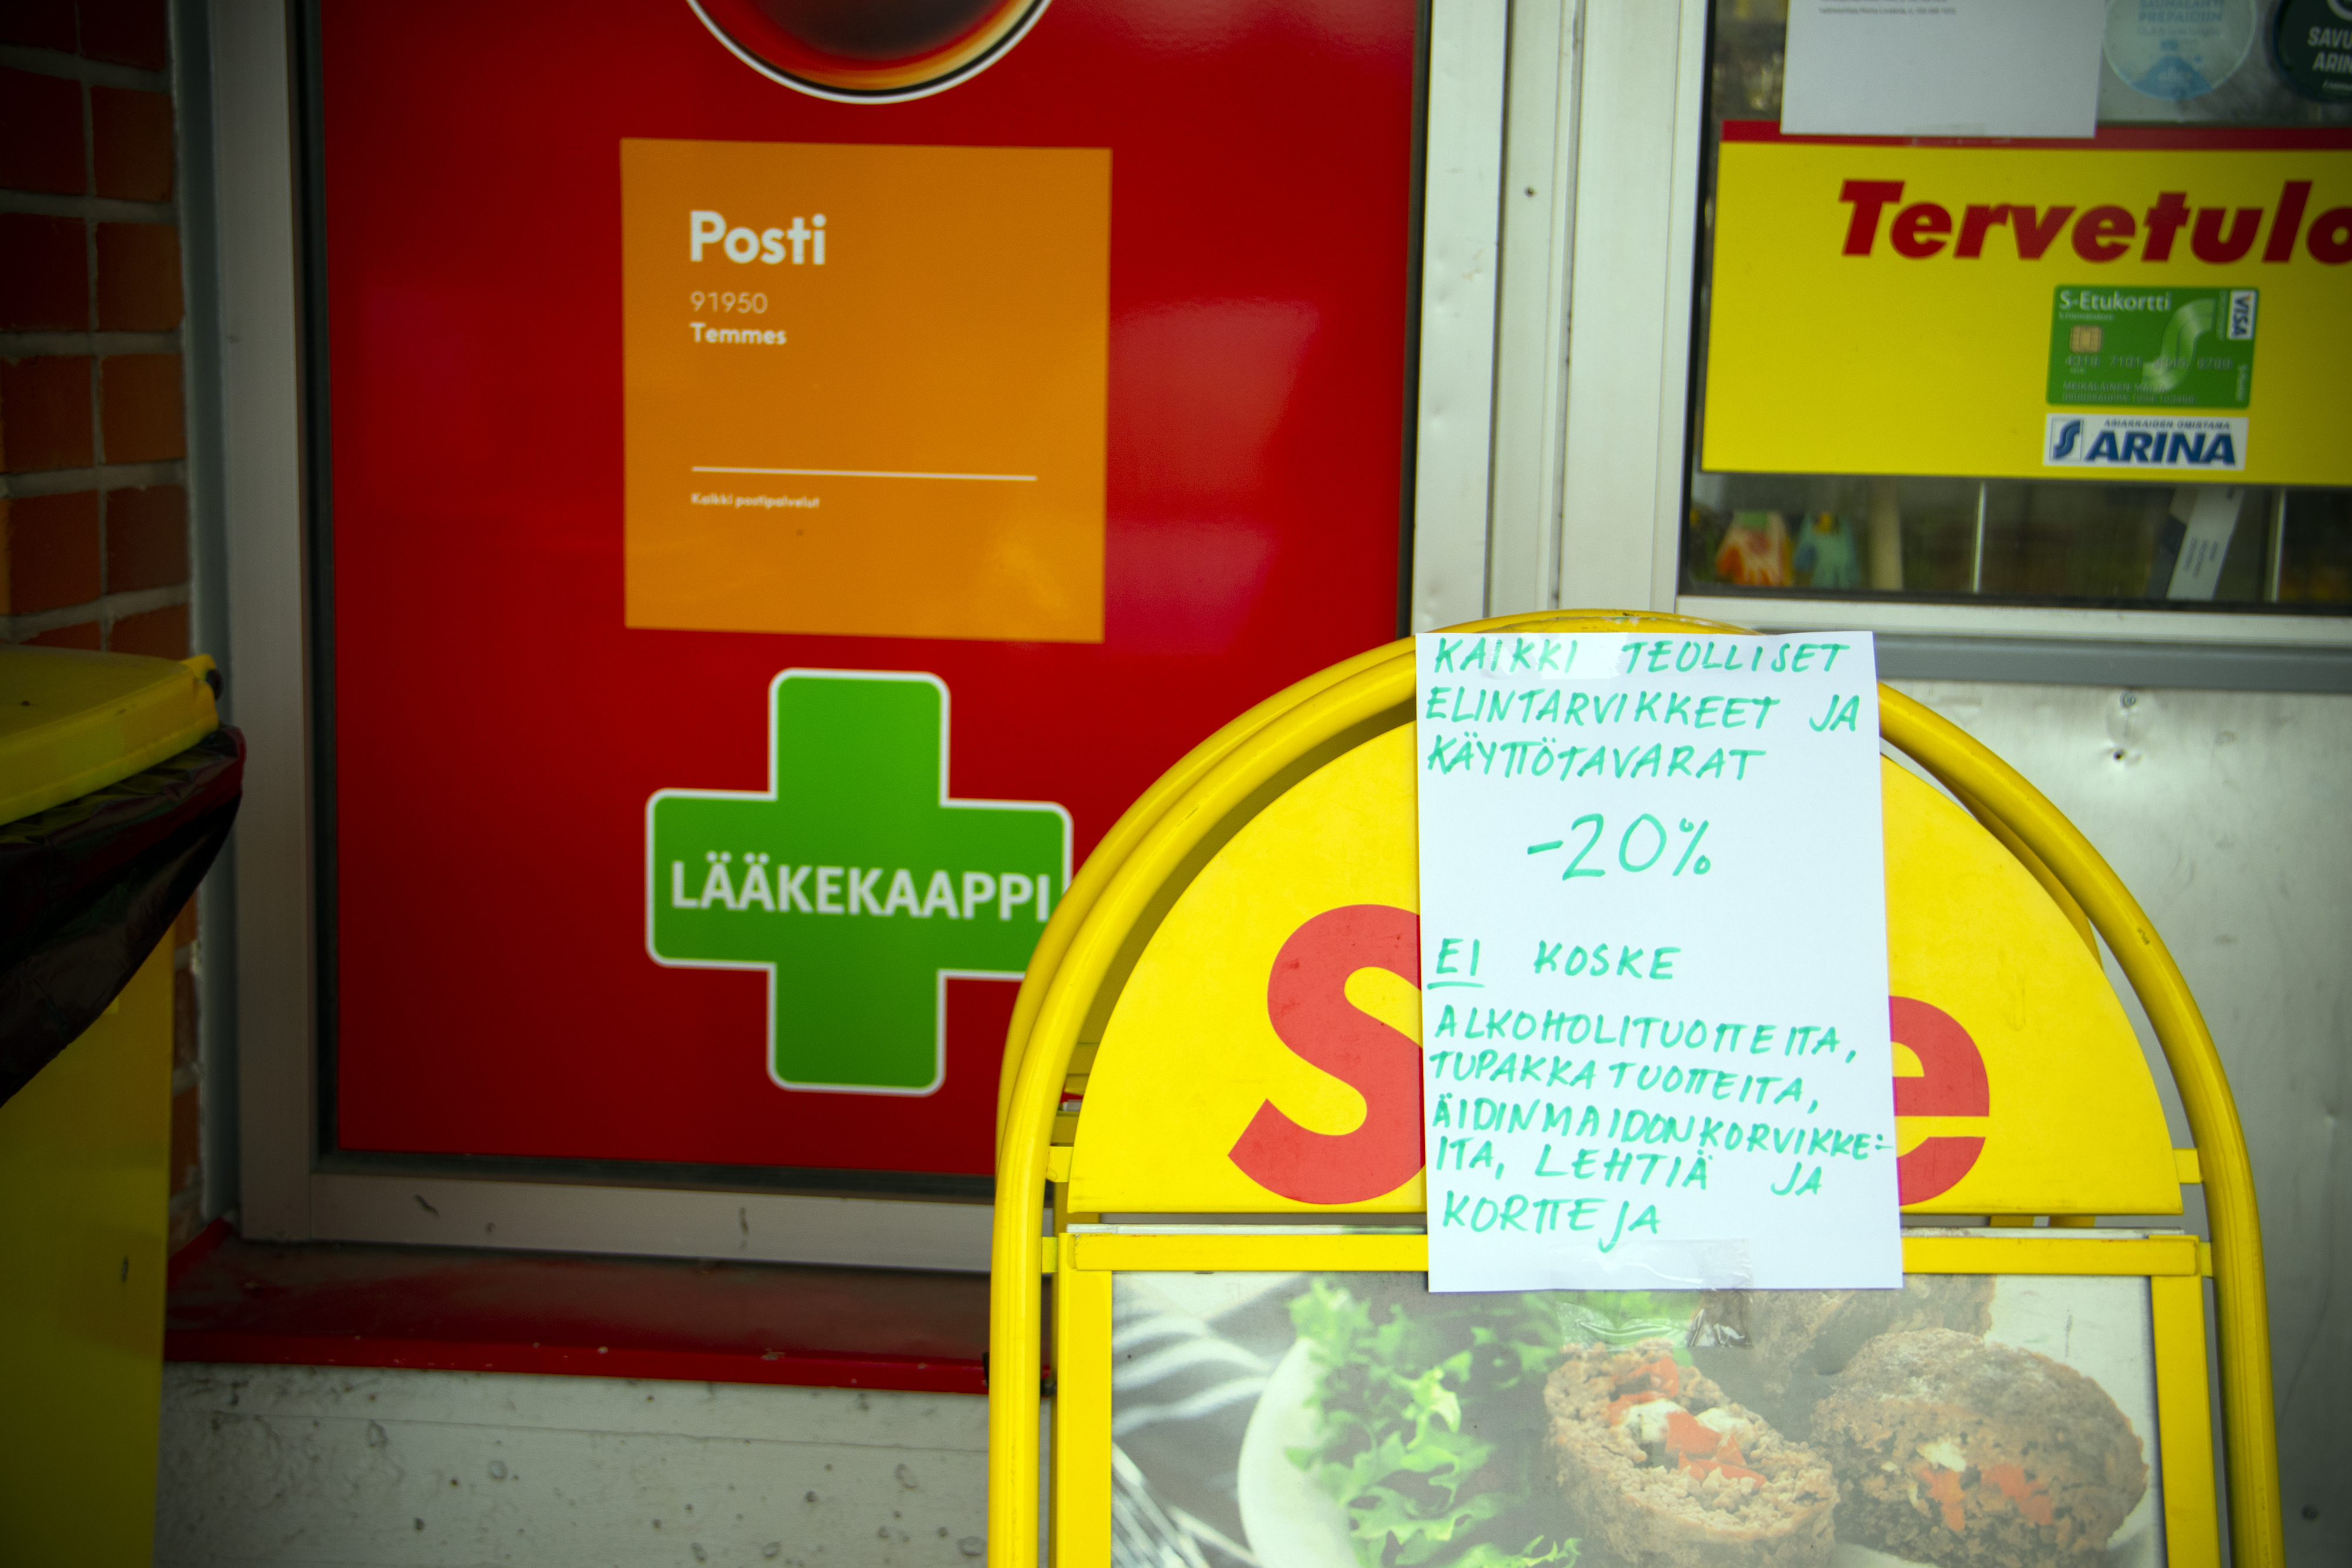 Posti
91950
Temmes
Kaikki postipalvelut
LÄÄKEKAAPPI
SAUNALAHTI
PREPAIDIN
Tervetulo
S-Etukortti
VISA
ASIAKKAIDEN OMISTAMA
ARINA
KAIKKI TEOLLISET
ELINTARVIKKEET JA
KÄYTTÖTAVARAT
-20%
EI KOSKE
ALKOHOLITUOTTEITA,
TUPAKKATUOTTEITA,
ÄIDINMAIDONKORVIKKE-
ITA, LEHTIÄ JA
KORTTEJA
S e